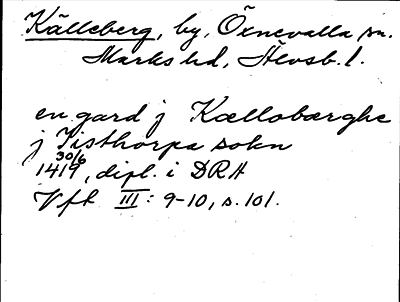 Källeberg, by, Öxnevalla sn.
Marks hd, Älvsb. l.
en gard j Kællobærghe
j Tisthorpa sokn
30/6
1419, dipl. i DRA
Vft III: 9-10, s. 101.